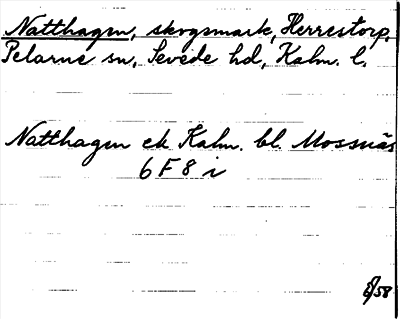 Natthagen, skogsmark, Herrestorp,
Pelarne sn, Sevede hd, Kalm. l.
Natthagen ek Kalm. bl. Mossnäs
6 F 8 i
8/58